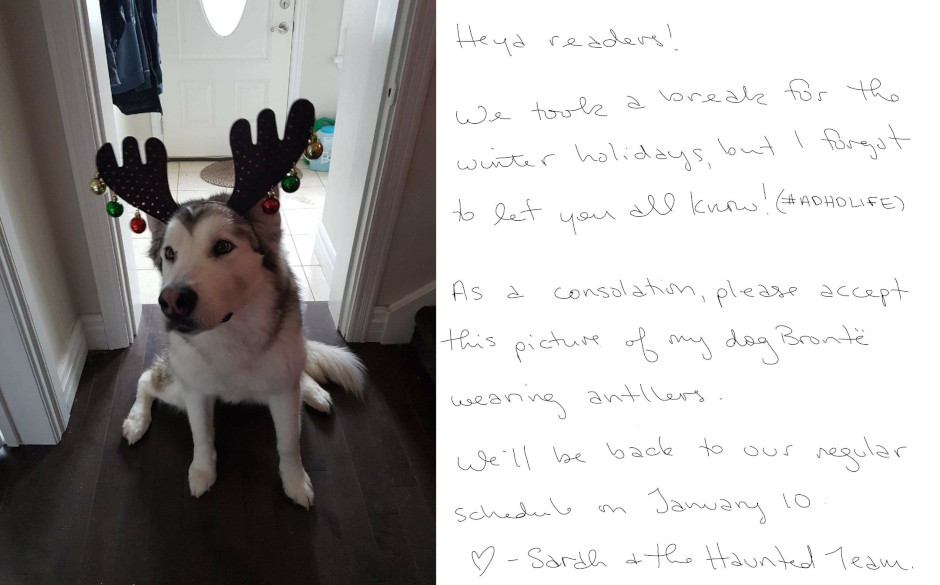 Heya readers!
We took a break for the
winter holidays, but I forgot
to let you all know! (#ADHDLIFE)
As a consolation, please accept
this picture of my dog Brontë
wearing antllers.
We'll be back to our regular
schedule on January 10.
♡ - Sarah & the Haunted Team.